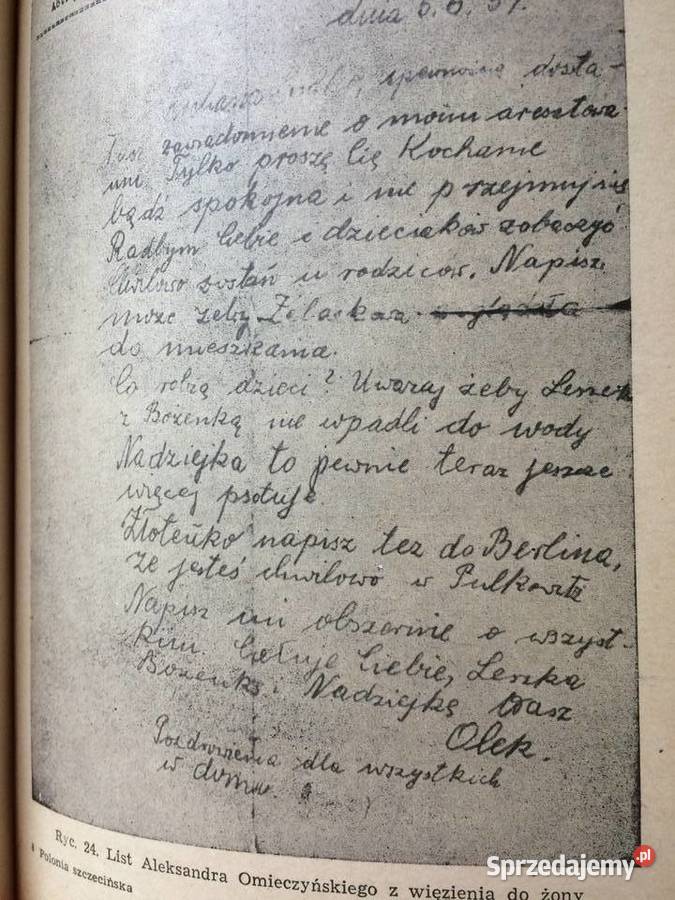 dnia 6.6.39.
Kochana , zpewnością dosta-
zawiadomienie o moim aresztowa-
niu. Tylko proszę Cię Kochanie
bądź spokojna i nie przejmuj się
Radbym Ciebie i dzieciaków zobaczyć
Chwilowo zostań u rodziców. Napisz
może żeby
do mieszkania.
Co robią dzieci? Uważaj żeby Leszek
z Bożenką nie wpadli do wody
Nadziejka to pewnie teraz jeszcze
więcej psotuje.
Złoteńko napisz też do Berlina,
że jesteś chwilowo w
Napisz mi obszernie o wszyst-
kim. Całuję Ciebie, Leszka
Bożenkę i Nadziejkę Wasz
Olek.
Pozdrowienia dla wszystkich
w domu.
Ryc. 24. List Aleksandra Omieczyńskiego z więzienia do żony
Polonia szczecińska
Sprzedajemy.pl